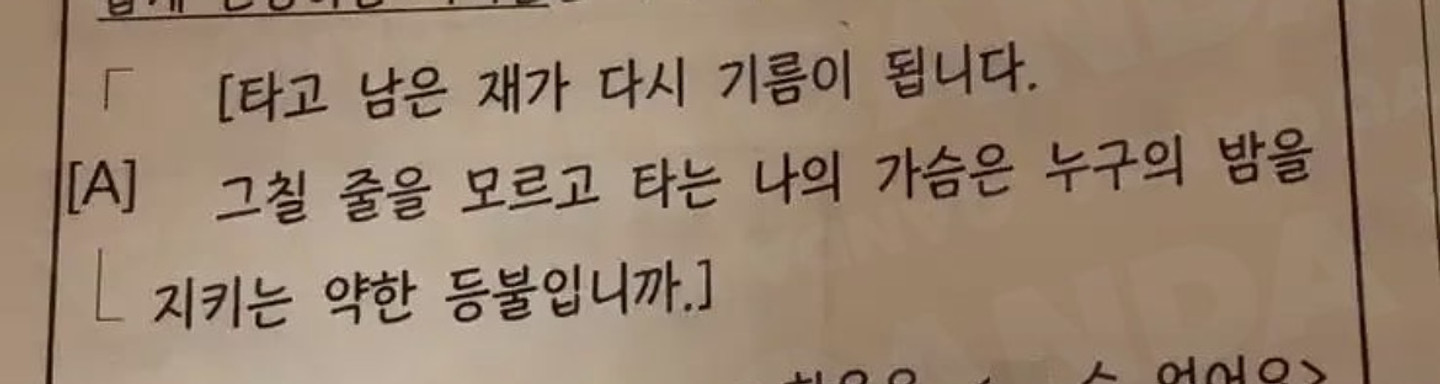 [타고 남은 재가 다시 기름이 됩니다.
[A] 그칠 줄을 모르고 타는 나의 가슴은 누구의 밤을
지키는 약한 등불입니까.]
수 없어요>